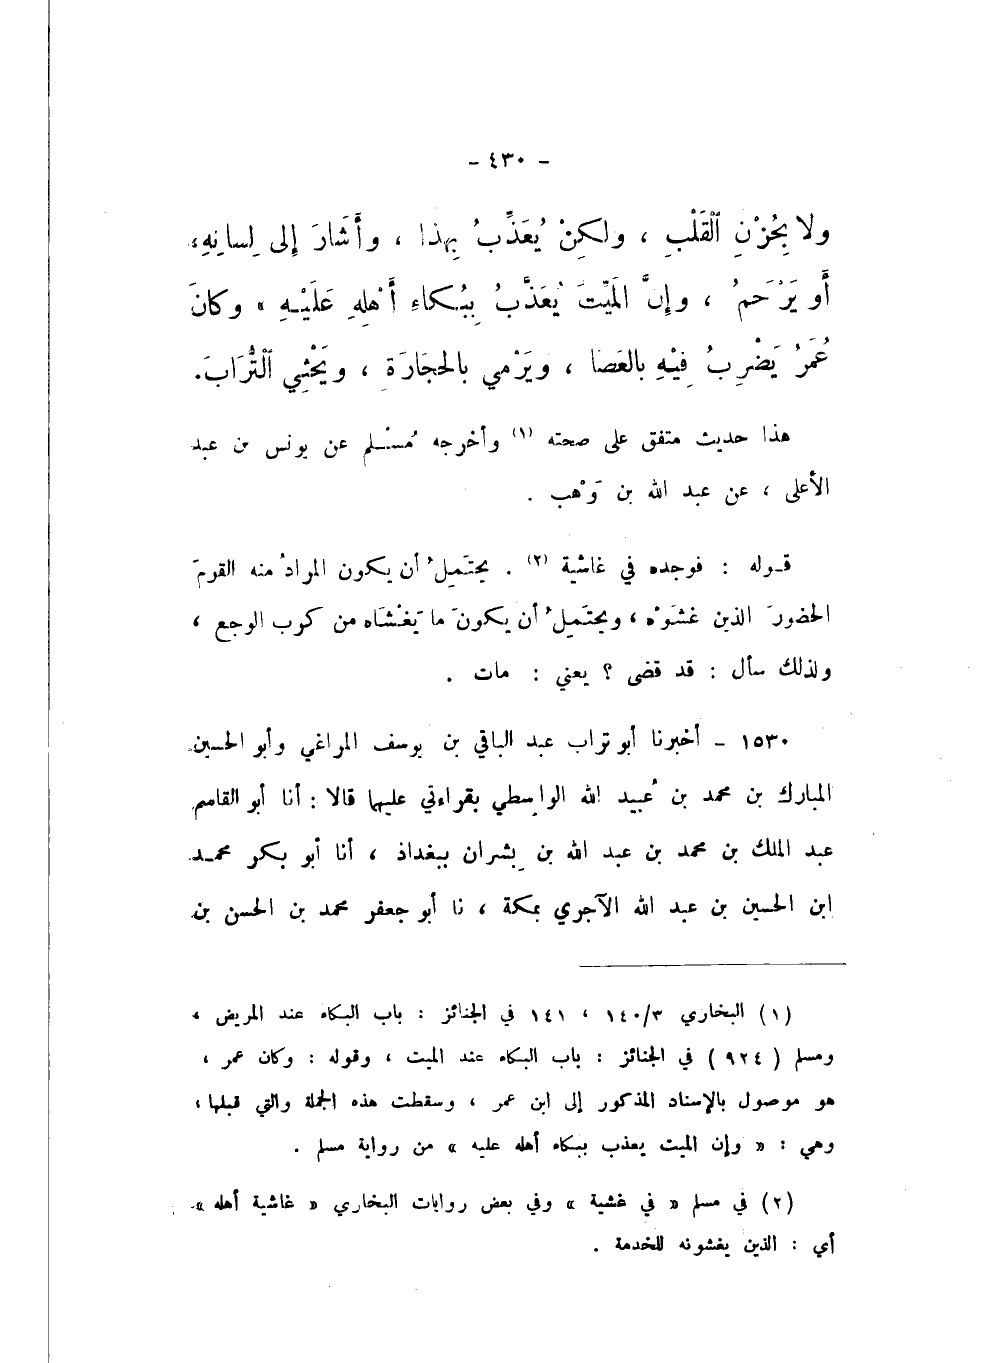 - ٤٣٠ -
ولا بِحُزْنِ ٱلْقَلْبِ ، ولكِنْ يُعَذِّبُ بِهذا ، وأَشَارَ إِلى لِسانِهِ ،
أَو يَرْحَمُ ، وإِنَّ المَيِّتَ يُعَذَّبُ بِبُكاءِ أَهْلِهِ عَلَيْهِ » وكانَ
عُمَرُ يَضْرِبُ فِيْهِ بالعَصَا ، ويَرْمي بالحِجَارَةِ ، ويَحْثِي ٱلتُّرَابَ.
هذا حديث متفق على صحته (١) وأخرجه مُسْلم عن يونس بن عبد
الأعلى ، عن عبد الله بن وَهْب .
قوله : فوجده في غاشية (٢) . يحتَمِلُ أن يكون المرادُ منه القومَ
الحضورَ الذين غشَوْه ، ويحتَمِلُ أن يكونَ ما يَغْشَاه من كرب الوجع ،
ولذلك سأل : قد قضى ؟ يعني : مات .
١٥٣٠ - أخبرنا أبو تراب عبد الباقي بن يوسف المراغي وأبو الحسين
المبارك بن محمد بن عُبيد الله الواسطي بقراءتي عليها قالا : أنا أبو القاسم
عبد الملك بن محمد بن عبد الله بن بِشران ببغداد ، أنا أبو بكر محمد
ابن الحسين بن عبد الله الآجري بمكة ، نا أبو جعفر محمد بن الحسن بن
(١) البخاري ١٤٠/٣ ، ١٤١ في الجنائز : باب البكاء عند المريض ،
ومسلم ( ٩٢٤ ) في الجنائز : باب البكاء عند الميت ، وقوله : وكان عمر ،
هو موصول بالإسناد المذكور إلى ابن عمر ، وسقطت هذه الجملة والتي قبلها ،
وهي : « وإن الميت يعذب ببكاء أهله عليه » من رواية مسلم .
(٢) في مسلم « في غشية » وفي بعض روايات البخاري « غاشية أهله »
أي : الذين يغشونه للخدمة .